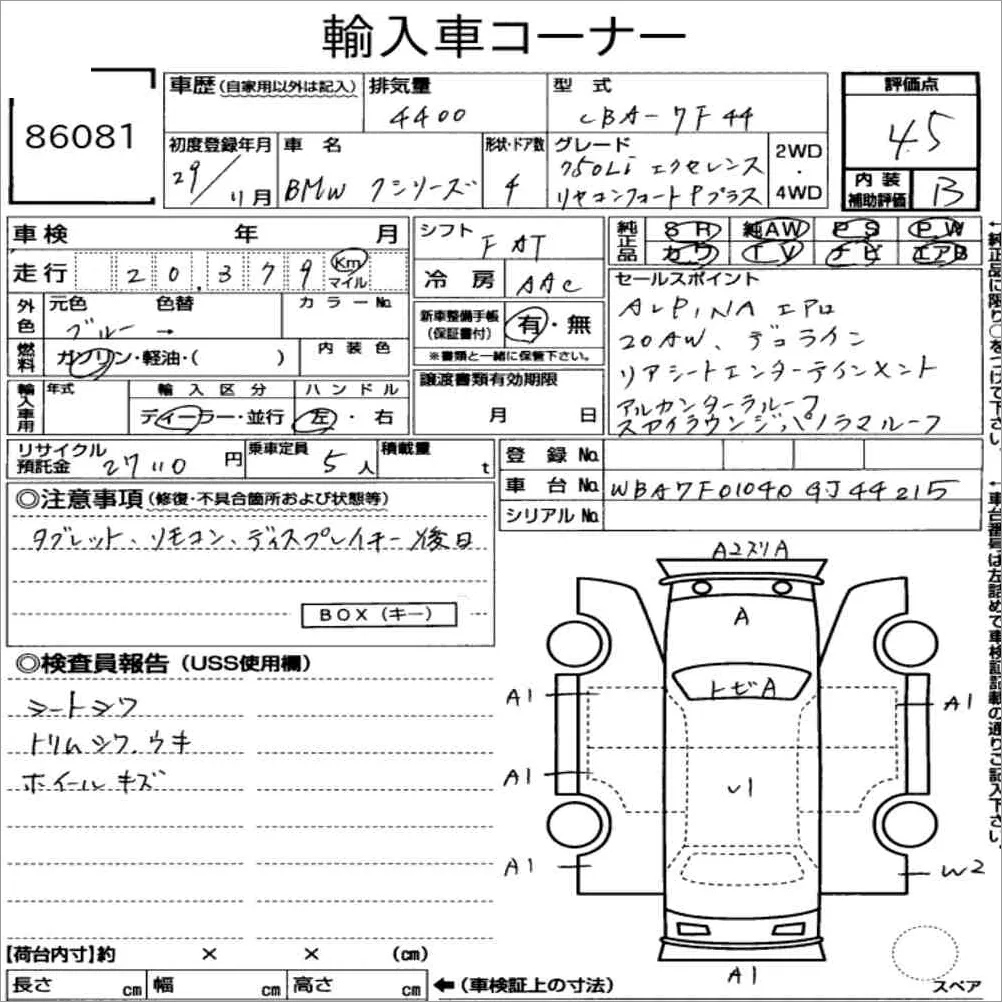 輸入車コーナー
86081
車歴(自家用以外は記入)
排気量
4400
型式
CBA-7F44
評価点
4.5
初度登録年月
29/11月
車名
BMW 7シリーズ
形状・ドア数
4
グレード
750Li エクセレンス
リヤコンフォートPプラス
2WD
・
4WD
内装
補助評価
B
車検 年 月
走行 20.379 Km
マイル
シフト
FAT
冷房 AAC
純正品
SR 純AW PS PW
カワ TV ナビ エアB
外色
元色 色替 カラーNo.
ブルー →
燃料
ガソリン・軽油・( )
内装色
新車整備手帳
(保証書付)
有・無
※書類と一緒に保管下さい。
セールスポイント
ALPINA エアロ
20AW、デコライン
リアシートエンターテインメント
アルカンターラルーフ
スカイラウンジパノラマルーフ
輸入車用
年式
輸入区分
ディーラー・並行
ハンドル
左・右
譲渡書類有効期限
月 日
リサイクル
預託金 27110円
乗車定員
5人
積載量
t
登録No.
車台No. WBA7F01040GJ44215
シリアルNo.
←純正品に限り○をつけて下さい。
←車台番号は左詰めで車検証記載の通りご記入下さい。
◎注意事項(修復・不具合箇所および状態等)
タブレット、リモコン、ディスプレイキー後日
BOX(キー)
◎検査員報告(USS使用欄)
シートシワ
トリムシワ、ウキ
ホイールキズ
A2スリA
A
トビA
A1
A1
A1
U1
A1
W2
A1
スペア
【荷台内寸】約 × × (cm)
長さ cm 幅 cm 高さ cm ←(車検証上の寸法)